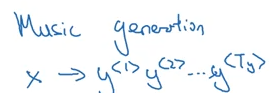 Music generation
x → y<1> y<2> ... y<Ty>